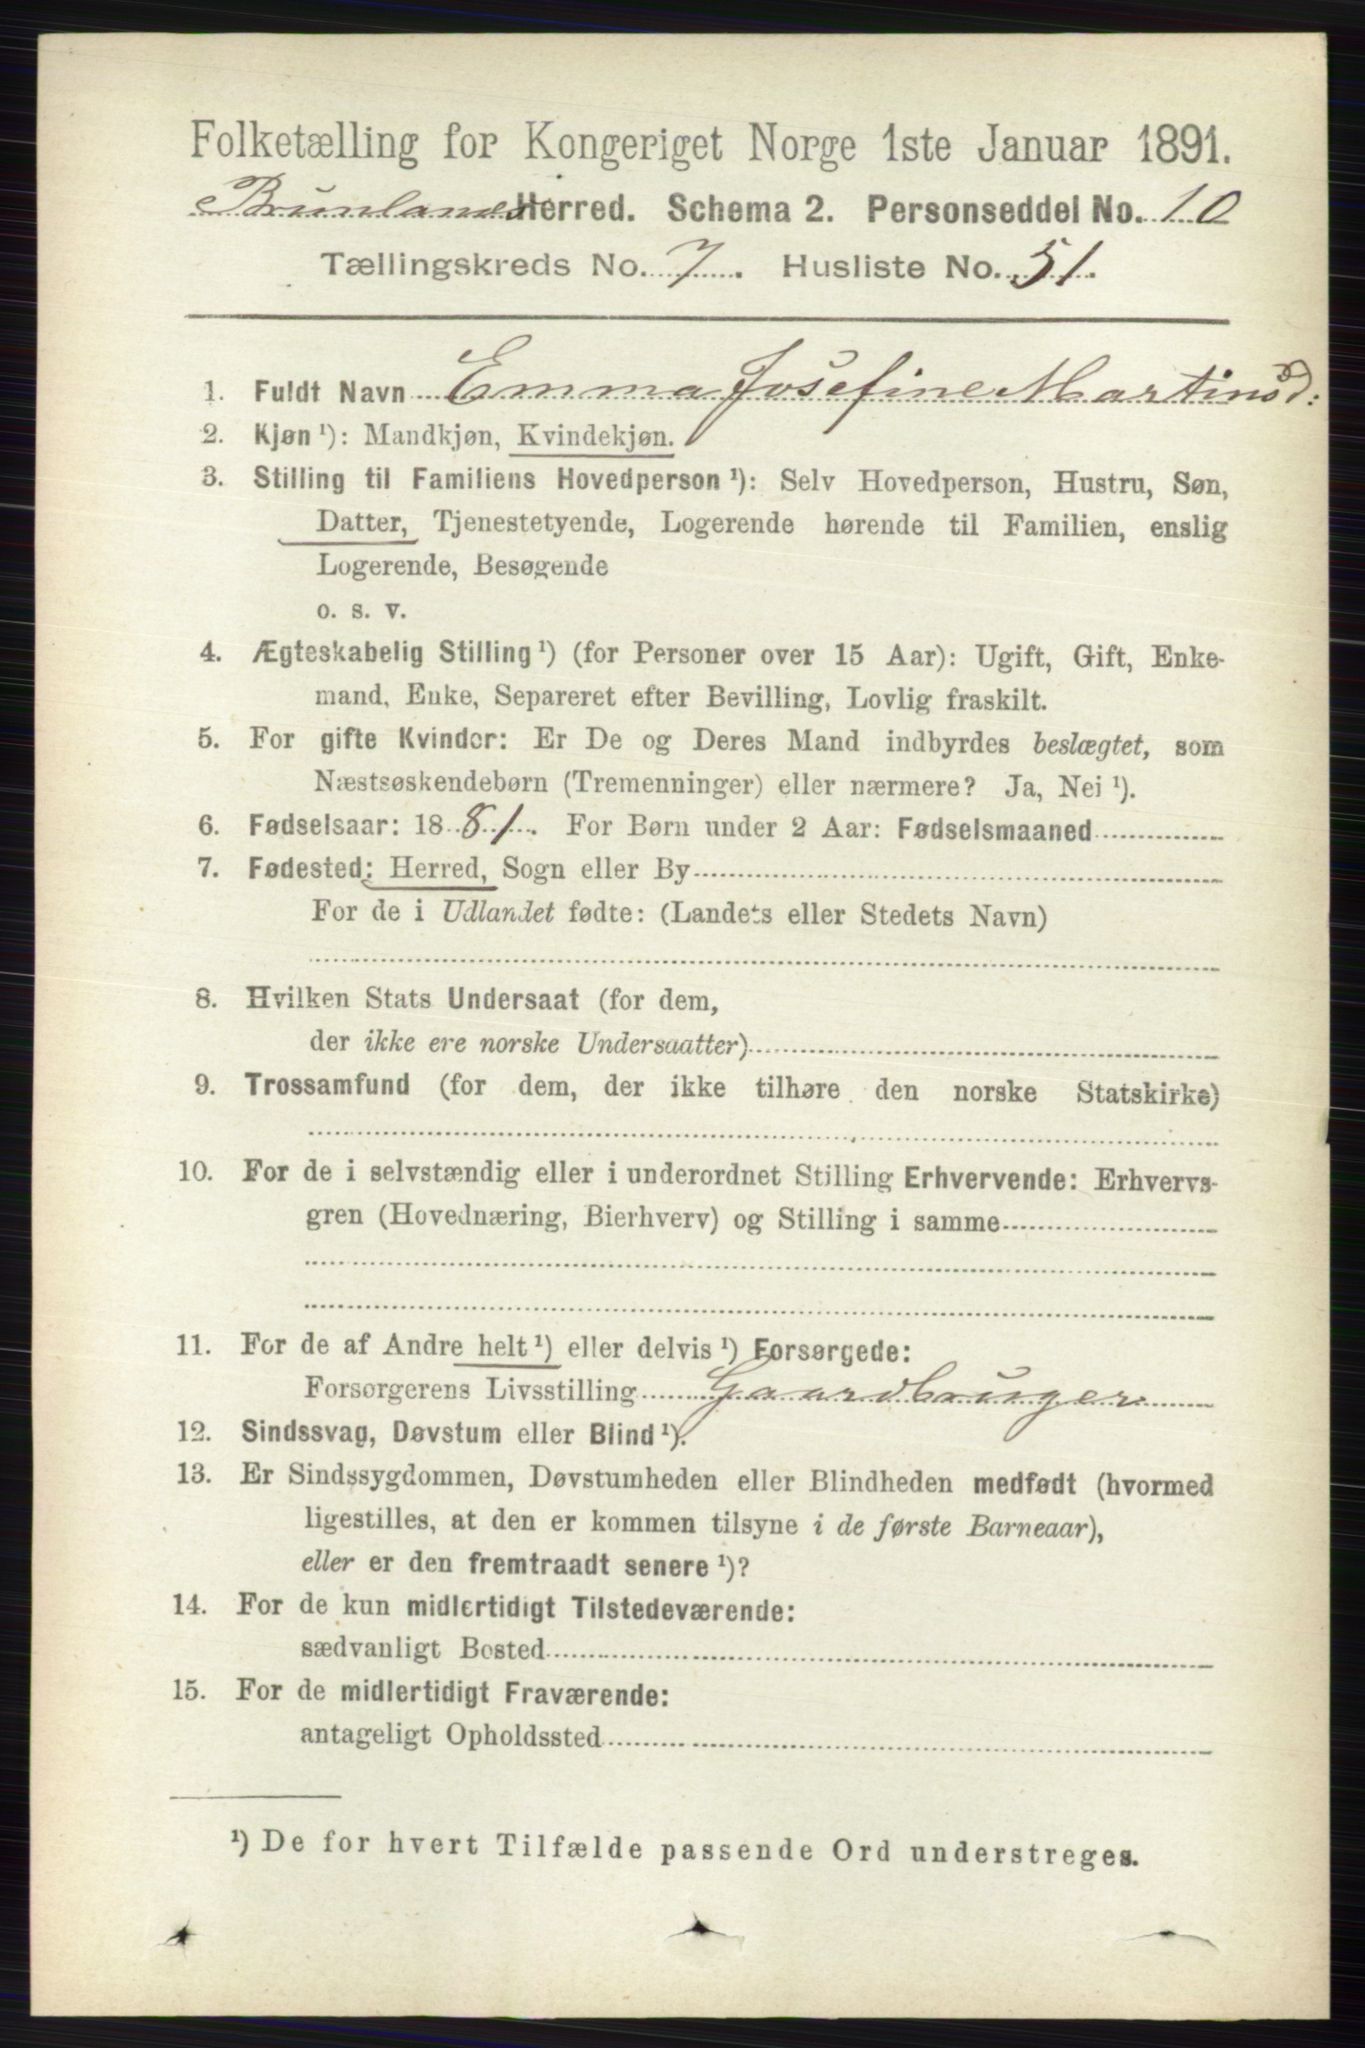 Folketælling for Kongeriget Norge 1ste Januar 1891.
Brunlanes Herred. Schema 2. Personseddel No. 10
Tællingskreds No. 7. Husliste No. 51.
1. Fuldt Navn Emma Josefine Martinsd:
2. Kjøn ¹): Mandkjøn, Kvindekjøn.
3. Stilling til Familiens Hovedperson ¹): Selv Hovedperson, Hustru, Søn,
Datter, Tjenestetyende, Logerende hørende til Familien, enslig
Logerende, Besøgende
o. s. v.
4. Ægteskabelig Stilling ¹) (for Personer over 15 Aar): Ugift, Gift, Enke-
mand, Enke, Separeret efter Bevilling, Lovlig fraskilt.
5. For gifte Kvinder: Er De og Deres Mand indbyrdes beslægtet, som
Næstsøskendebørn (Tremenninger) eller nærmere? Ja, Nei ¹).
6. Fødselsaar: 1881. For Børn under 2 Aar: Fødselsmaaned
7. Fødested: Herred, Sogn eller By
For de i Udlandet fødte: (Landets eller Stedets Navn)
8. Hvilken Stats Undersaat (for dem,
der ikke ere norske Undersaatter)
9. Trossamfund (for dem, der ikke tilhøre den norske Statskirke)
10. For de i selvstændig eller i underordnet Stilling Erhvervende: Erhvervs-
gren (Hovednæring, Bierhverv) og Stilling i samme
11. For de af Andre helt ¹) eller delvis ¹) Forsørgede:
Forsørgerens Livsstilling Gaardbruger
12. Sindssvag, Døvstum eller Blind ¹).
13. Er Sindssygdommen, Døvstumheden eller Blindheden medfødt (hvormed
ligestilles, at den er kommen tilsyne i de første Barneaar),
eller er den fremtraadt senere ¹)?
14. For de kun midlertidigt Tilstedeværende:
sædvanligt Bosted
15. For de midlertidigt Fraværende:
antageligt Opholdssted
¹) De for hvert Tilfælde passende Ord understreges.